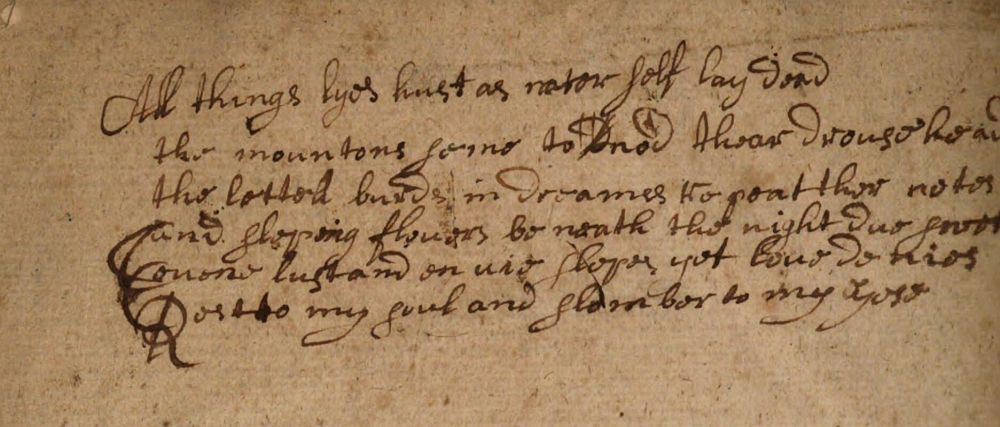 All things lyes hust as nator self lay dead
the mountons seme to nod thear drouse head
the lettell burds in dreames repeat ther notes
and sleping flouers beneath the night due sweet
euene lust and envie slepes yet loue denies
Rest to my soul and slomber to my Eyese